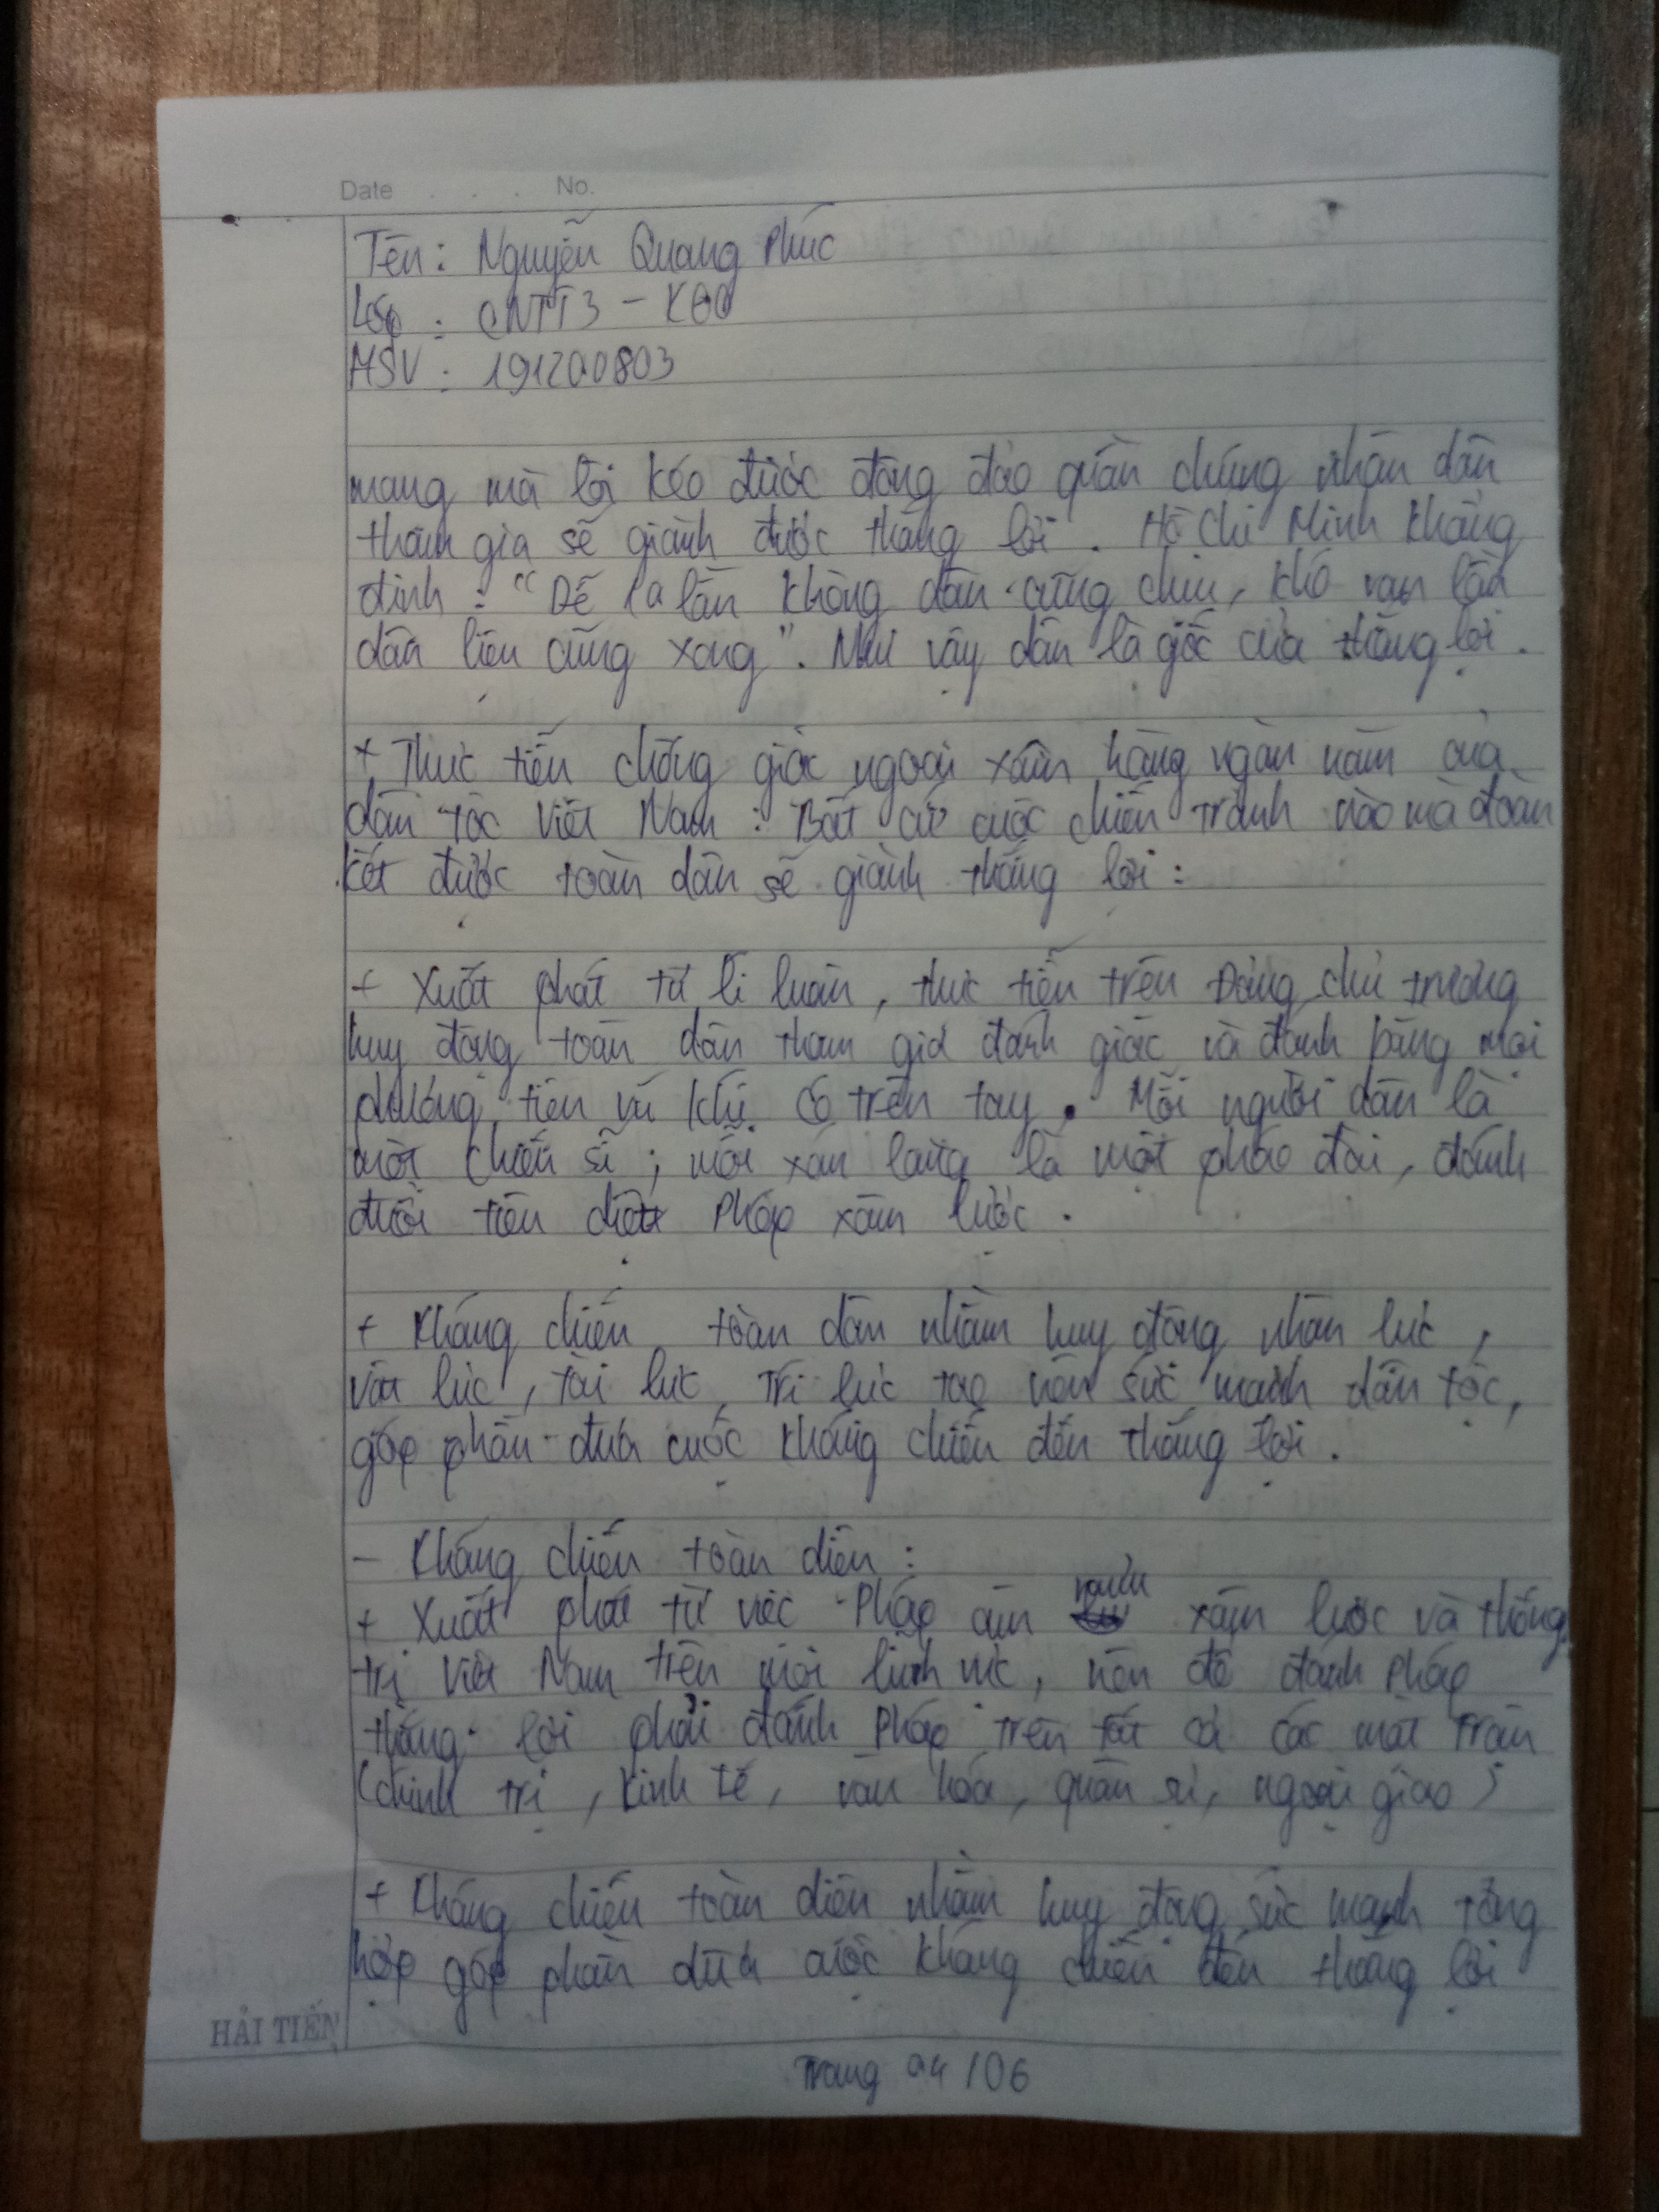 Date . . . No.
Tên: Nguyễn Quang Phúc
Lớp : CNTT3 - K60
MSV : 191200803
mạng mà lôi kéo được đông đảo quần chúng nhân dân
tham gia sẽ giành được thắng lợi. Hồ Chí Minh khẳng
định: "Dễ 10 lần không dân cũng chịu, khó vạn lần
dân liệu cũng xong". Như vậy dân là gốc của thắng lợi.
+ Thực tiễn chống giặc ngoại xâm hàng ngàn năm của
dân tộc Việt Nam: Bất cứ cuộc chiến tranh nào mà đoàn
kết được toàn dân sẽ giành thắng lợi:
+ Xuất phát từ lí luận, thực tiễn trên Đảng chủ trương
huy động toàn dân tham gia đánh giặc và đánh bằng mọi
phương tiện vũ khí có trên tay. Mỗi người dân là
một chiến sĩ; mỗi xóm làng là một pháo đài, đánh
đuổi tiêu diệt Pháp xâm lược.
+ Kháng chiến toàn dân nhằm huy động nhân lực,
vật lực, tài lực, trí lực tạo nên sức mạnh dân tộc,
góp phần đưa cuộc kháng chiến đến thắng lợi.
- Kháng chiến toàn diện:
+ Xuất phát từ việc Pháp âm mưu xâm lược và thống
trị Việt Nam trên mọi lĩnh vực, nên để đánh Pháp
thắng lợi phải đánh Pháp trên tất cả các mặt trận
(chính trị, kinh tế, văn hóa, quân sự, ngoại giao)
+ Kháng chiến toàn diện nhằm huy động sức mạnh tổng
hợp góp phần đưa cuộc kháng chiến đến thắng lợi
HẢI TIẾN
Trang 04/06